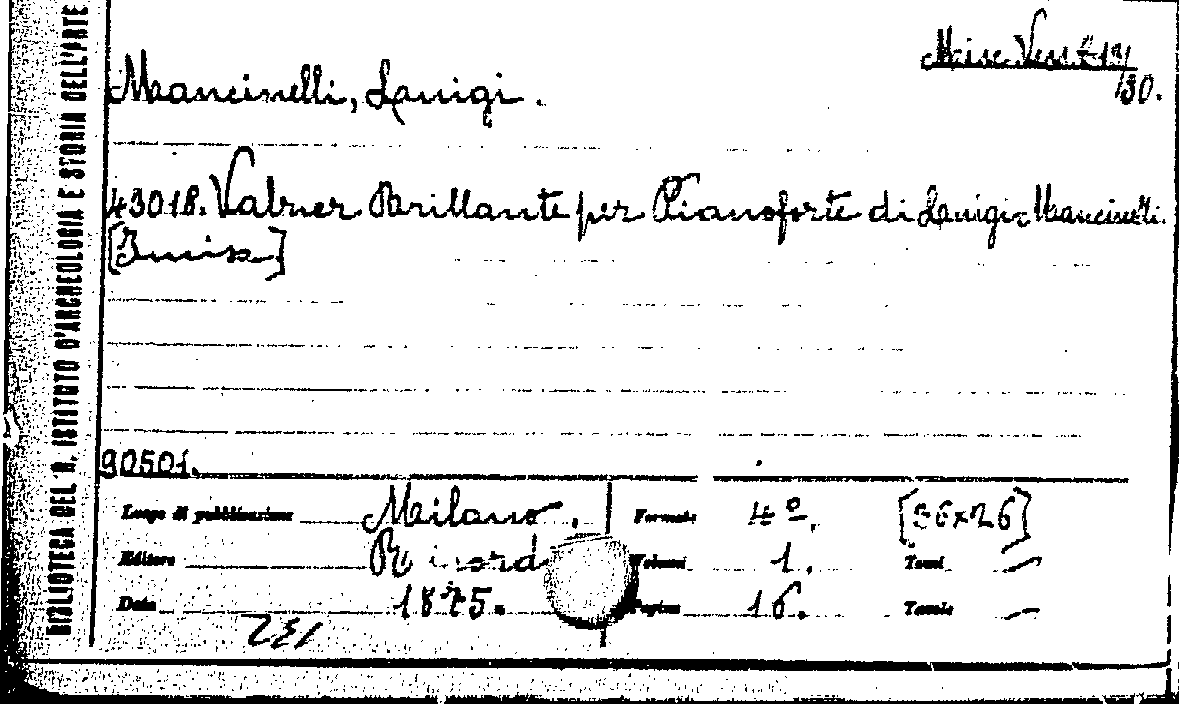 BIBLIOTECA DEL R. ISTITUTO D'ARCHEOLOGIA E STORIA DELL'ARTE
Misc. Vess. 131
130.
Mancinelli, Luigi.
43018. Valzer Brillante per Pianoforte di Luigi Mancinelli.
[Musica]
90501.
Luogo di pubblicazione Milano. Formato 4º. [36x26]
Editore Ricord Volumi 1. Tomi —
Data 1875. Pagine 16. Tavole —